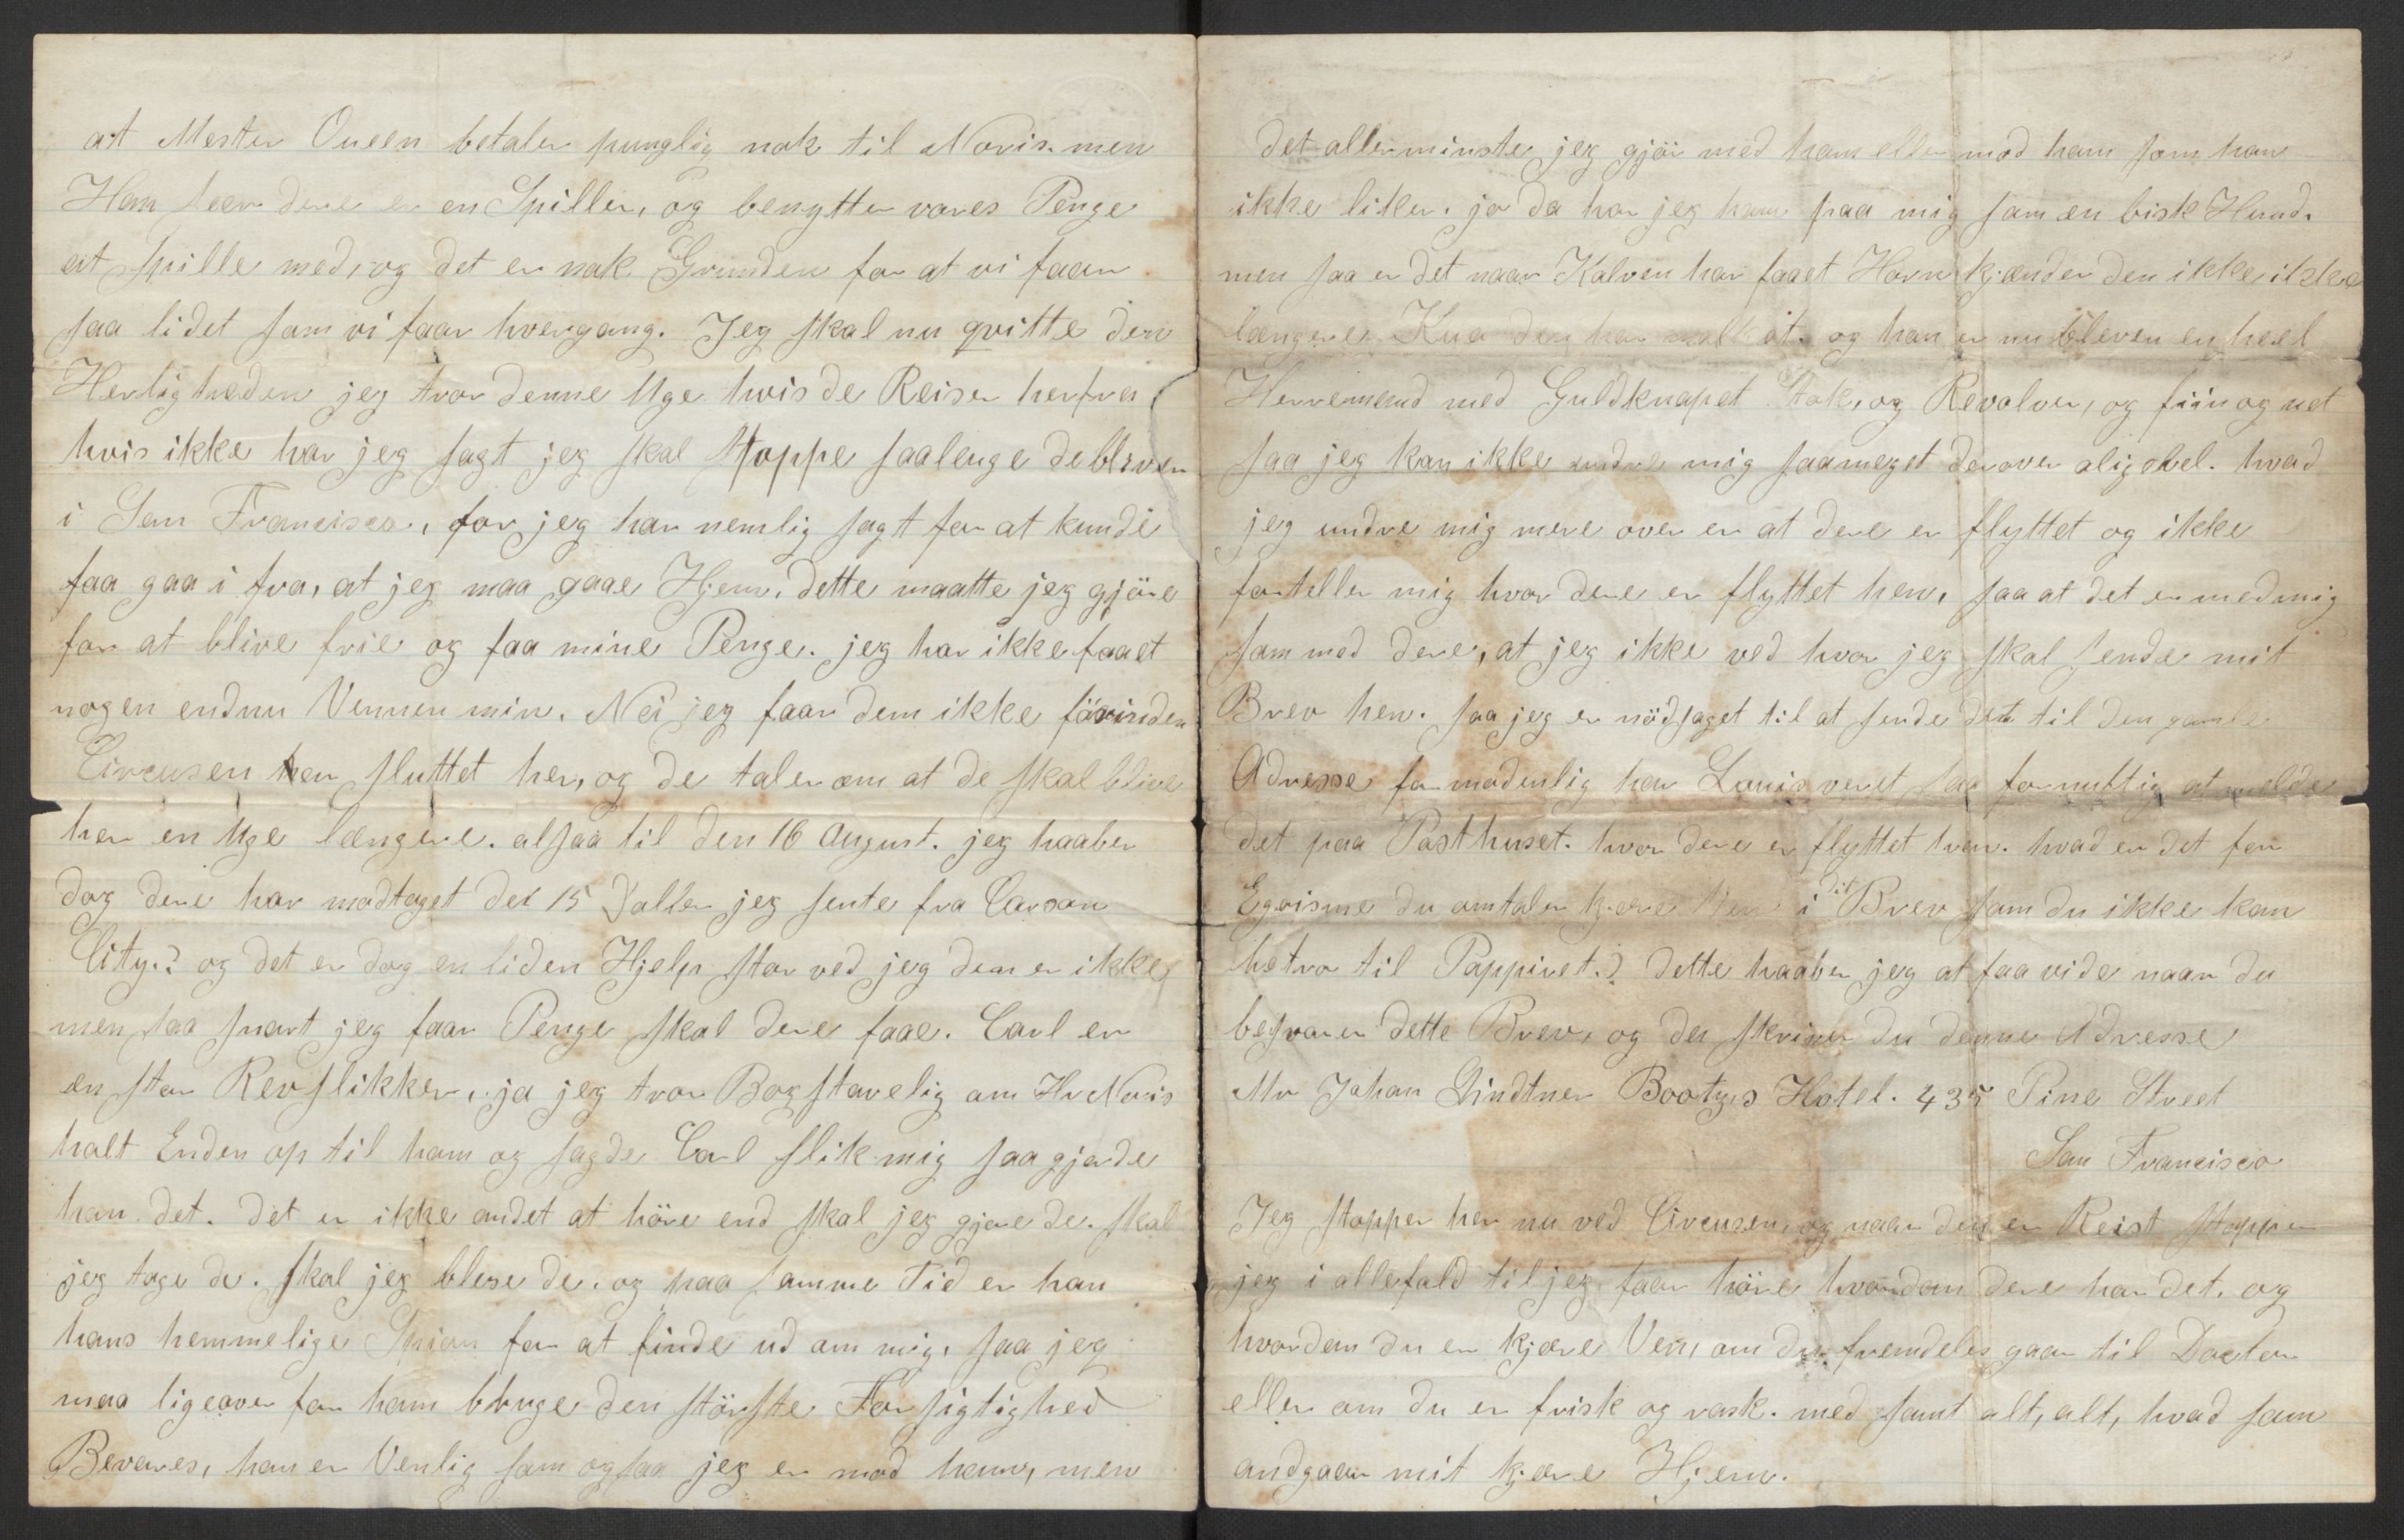 at Mester Queen betaler punglig nok til Noris. men
Han seer dere er en Spiller, og benytter vores Penge
at spille med, og det er nok Grunden for at vi faar
saa lidet som vi faar hvergang. Jeg skal nu qvitte den
Herligheden jeg tror denne Uge hvis de Reiser herfra
hvis ikke har jeg sagt jeg skal stoppe saalenge de bliver
i San Francisco, for jeg har nemlig sagt for at kunde
faa gaa i fra, at jeg maa gaae Hjem, dette maatte jeg gjöre
for at blive frie og faa mine Penge. jeg har ikke faaet
nogen endnu Vennen min. Nei jeg faar dem ikke förinden
Circusen har sluttet her, og de taler om at de skal blive
her en Uge længere. alsaa til den 16 August. jeg haaber
dog dere har modtaget det 15 Daller jeg sente fra Carson
City.? og det er dog en liden Hjelp stor ved jeg den er ikke
men saa snart jeg faar Penge skal dere faae. Carl er
en stor Revslikker, ja jeg tror Bogstavelig om Hr Noris
halt Enden op til ham og sagde Carl slik mig saa gjorde
han det. det er ikke andet at höre end skal jeg gjöre de. skal
jeg tage de. skal jeg blese de. og paa samme Tid er han
hans hemmelige Spion for at finde ud om mig, saa jeg
maa ligeover for ham bruge den störste Forsigtighed
Bevares, han er Venlig som ogsaa jeg er mod ham, men
det allerminste jeg gjör med ham eller mod ham som han
ikke liker. jo da har jeg ham paa mig som en bisk Hund.
men saa er det naar Kalven har faaet Horn kjænder den ikke ikke
længere Kua den har malk at. og han er nu bleven en heel
Herremand med Guldknapet Stok, og Revolver, og fiin og net
saa jeg kan ikke undre mig saameget derover aligevel. hvad
jeg undre mig mere over er at dere er flyttet og ikke
forteller mig hvor dere er flyttet hen, saa at det er med mig
som med dere, at jeg ikke ved hvor jeg skal sende mit
Brev hen. saa jeg er nödsaget til at sende det til den gamle
Adresse formodenlig har Louis veret saa fornuftig at melde
det paa Posthuset. hvor dere er flyttet hen. hvad er det for
Egoisme du omtaler kjære Ven i dit Brev som du ikke kan
betro til Pappiret.? dette haaber jeg at faa vide naar du
besvarer dette Brev, og da skriver du denne Adresse
Mr Johan Lindtner Bootys Hotel. 435 Pine Street
San Francisco
Jeg stopper her nu ved Circusen, og naar den er Reist stopper
jeg i allefald til jeg faar höre hvordan dere har det. og
hvordan du er kjære Ven, om du fremdeles gaar til Doctor
eller om du er frisk og rask. med samt alt, alt, hvad som
andgaar mit kjære Hjem.